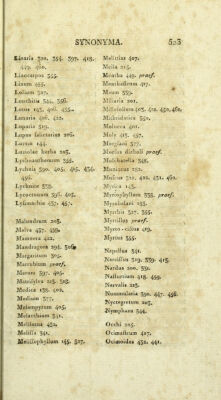 SYNONYMA. 523
Linaria 320. 354. 397. 418.
449. 460.
Linocarpos 355.
Linum 455.
Lolium 327.
Lonchitis 344. 356.
Lotus 145. 406. 455.
Lunaria 426. 422.
Luparia 519.
Lupus salictarius 206.
Lustrus 144.
Luteolae herba 203.
Lychnanthemum 355.
Lychnis 390. 405. 415. 436.
456.
Lychnitis 338.
Lycoctonum 396. 405.
Lysimachia 437. 457.
Malandrum 205.
Malva 437. 459.
Mammera 422.
Mandragora 194. 306.
Margaritum 305.
Marrubium praef.
Marum 397. 405.
Matrisylva 223. 323.
Medica 138. 402.
Medium 377.
Melampyrum 405.
Melanthium 341.
Melilotus 452.
Melissa 341.
Melissophyllum 145. 527.
Mellitius 407.
Melia 215.
Mentha 449. praef.
Menthastrum 417.
Meum 339.
Miliaria 201.
Millefolium 203. 422. 450. 460.
Mithridatica 351.
Molucca 401.
Moly 415. 457.
Morgsani 377.
Morsus diaboli praef.
Moschatella 348.
Munientz 252.
Muscus 312. 422. 431. 462.
Myrica 143.
Myriophyllum 338. praef.
Myrobalani 133.
Myrrhis 327. 355.
Myrtillus praef.
Myrto-cistus 419.
Myrtus 355.
Napellus 341.
Narcissus 319. 339. 415.
Nardus 200. 352.
Nasturtium 418. 459.
Nervalis 213.
Nummularia 390. 447. 456.
Nyctegretum 203.
Nymphaea 344.
Occhi 205.
Ocimastrum 427.
Ocimoides 432. 441.